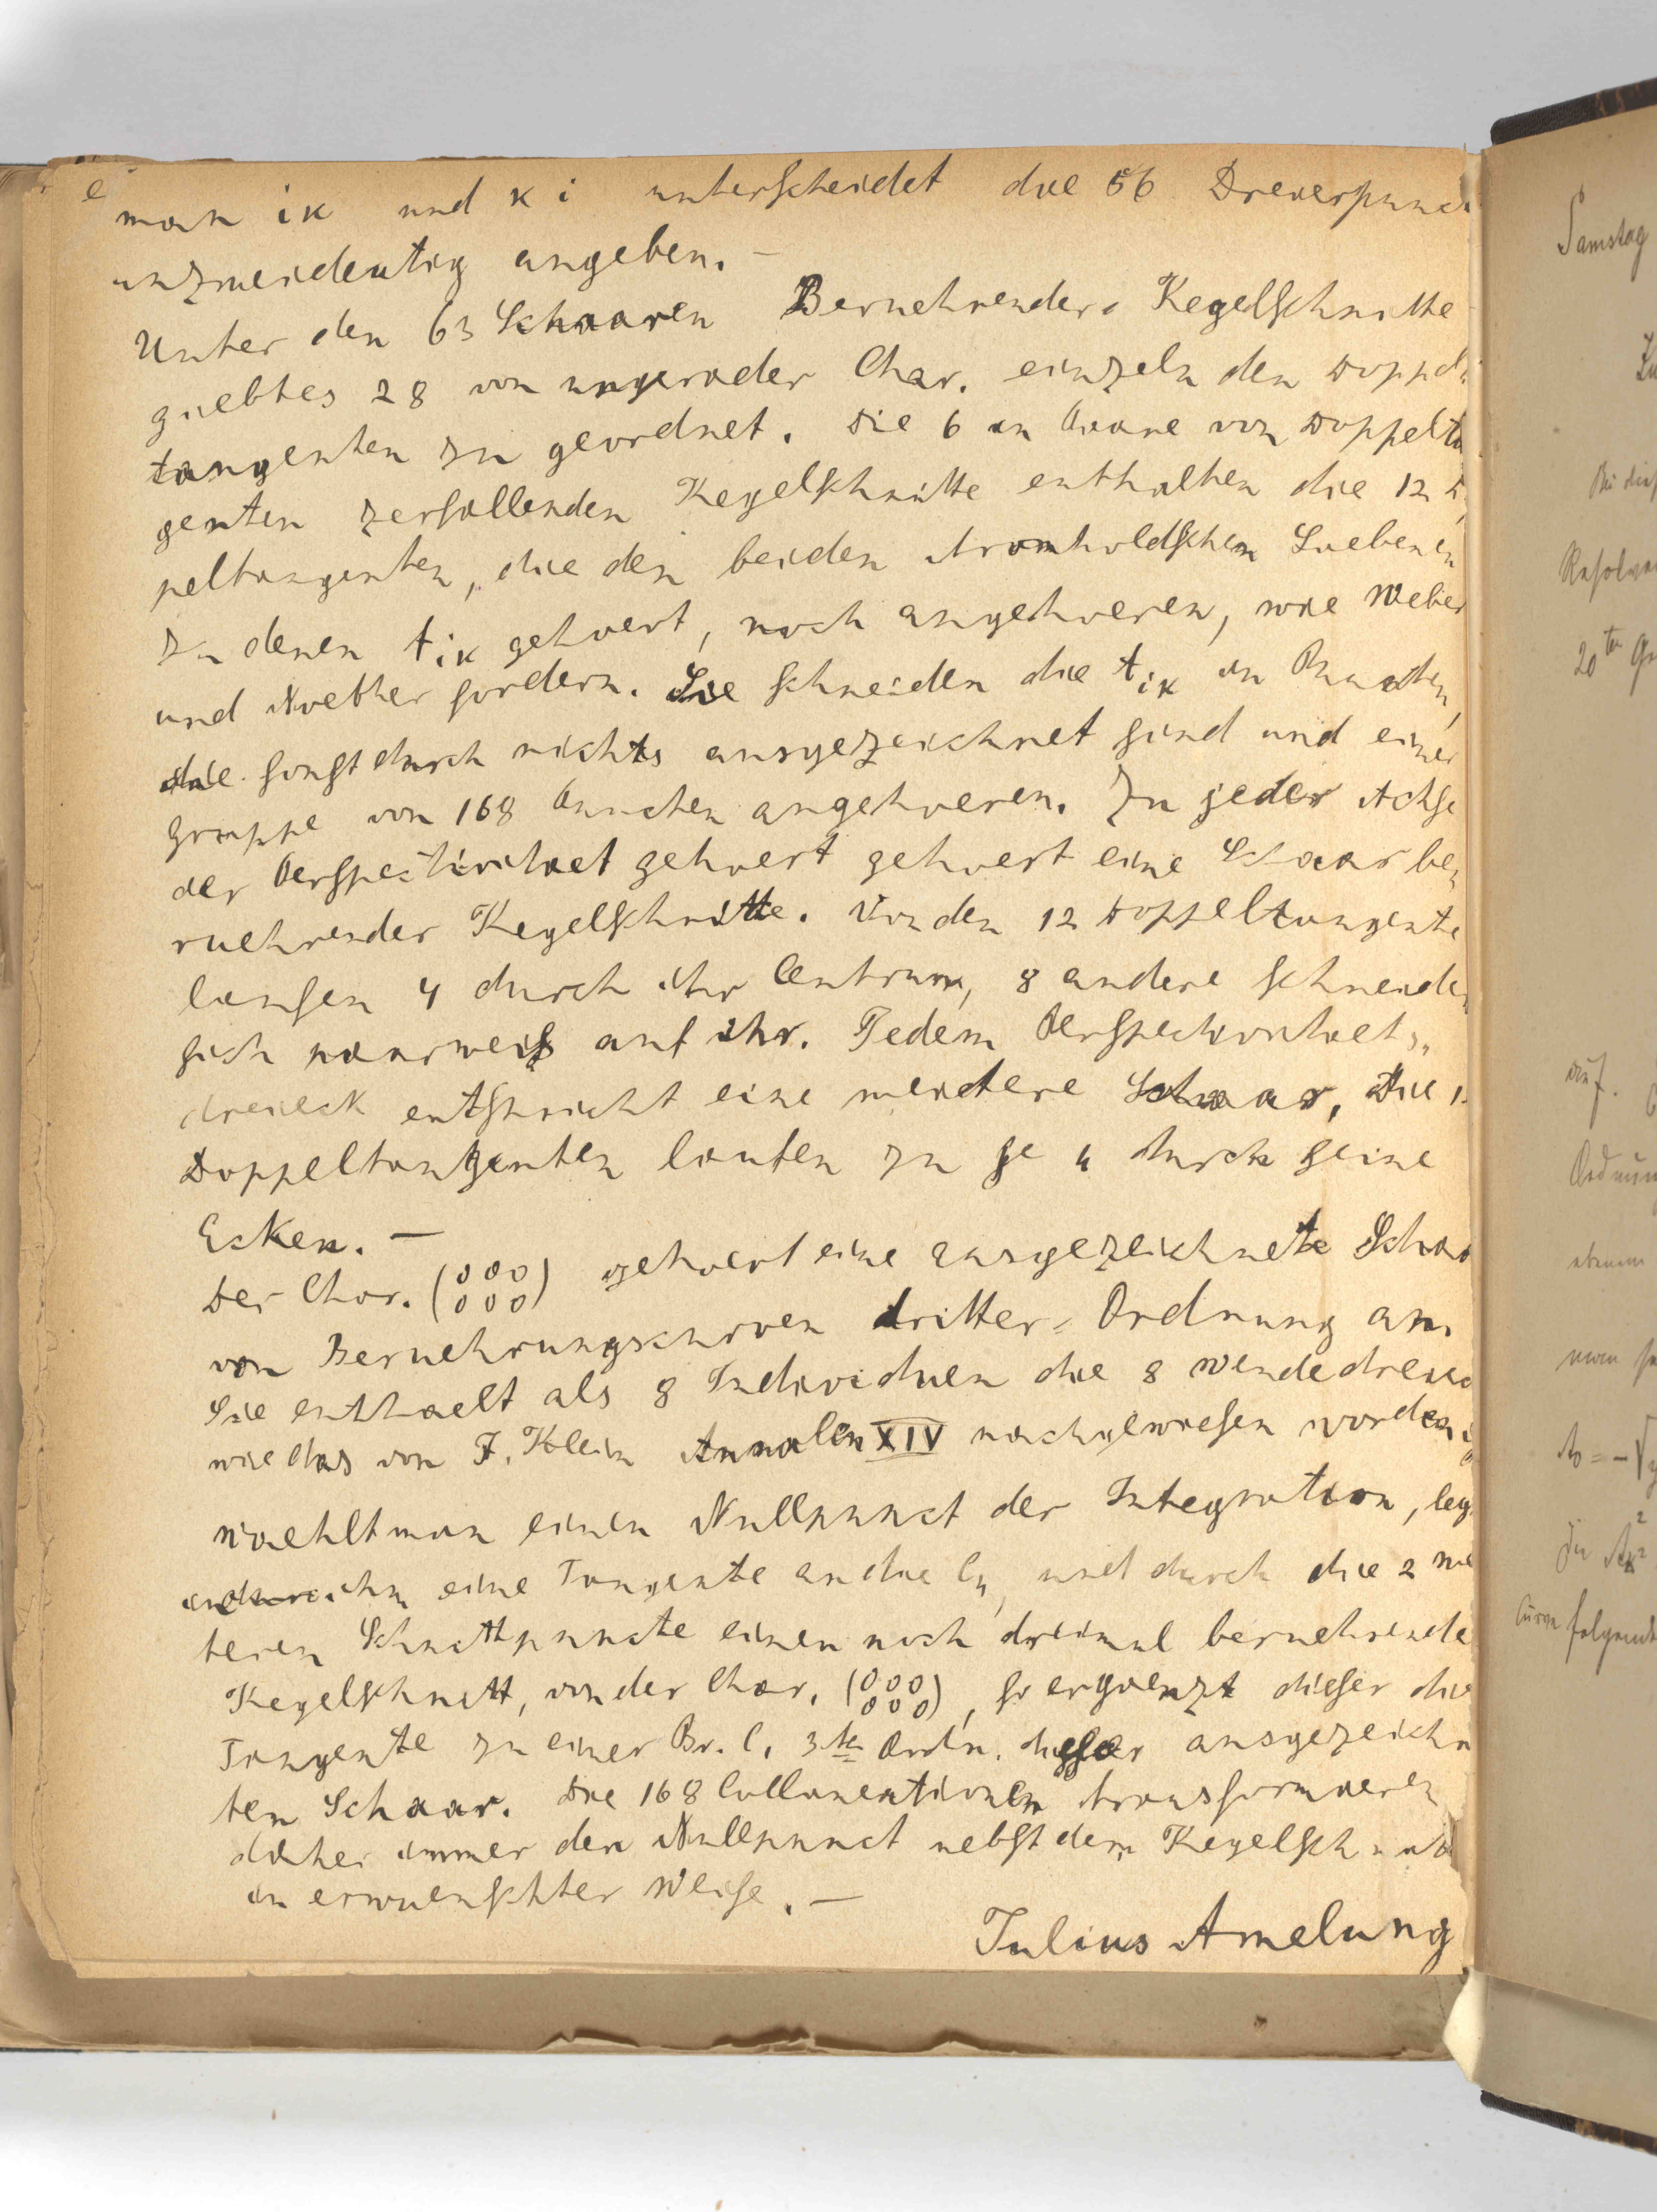 man ik und ki unterscheidet die 56 Dreierpunct
unzweideutig angeben. —
Unter den 63 Schaaren Beruehrender Kegelschnitte
giebtes 28 von ungerader Char. einzeln den Doppel
tangenten zu geordnet. Die 6 in Paare von Doppelta
genten zerfallenden Kegelschnitte enthalten die 12 D
peltangenten, die den beiden Aronholdschen Siebenen
zu denen t_ik gehoert, noch angehoeren, wie Weber
und Noether fordern. Sie schneiden die t_ik in Puncten,
die sonst durch nichts ausgezeichnet sind und einer
Gruppe von 168 Puncten angehoeren. Zu jeder Achse
der Perspectivitaet gehoert gehoert eine Schaar be,
ruehrender Kegelschnitte. Von den 12 Doppeltangente
laufen 4 durch ihr Centrum, 8 andere schneiden
sich paarweis auf ihr. Jedem Perspectivitaets,,
dreieck entspricht eine weitere Schaar, Die 1
Doppeltangenten laufen zu je 4 durch seine
Ecken. —
Der Char. (000/000) gehoert eine ausgezeichnete Schaa
von Beruehrungscurven dritter Ordnung an.
Sie enthaelt als 8 Individuen die 8 Wendedreiec
wie das von F. Klein Annalen XIV nachgewiesen worden
Waehlt man einen Nullpunct der Integration, leg
ihn eine Tangente an die C4, und durch die 2 we
teren Schnittpuncte einen noch dreimal beruehrende
Kegelschnitt, von der Char. (000/000), so ergaenzt dieser die
Tangente zu einer Br. C. 3ter Ordn. dieser ausgezeichn
ten Schaar. Die 168 Collineationen transformieren
daher immer den Nullpunct nebst dem Kegelschnitt
in erwuenschter Weise. —
Julius Amelung
Samstag
Resolve
20ten Gr
auf.
Ordnun
ebenem
man
Curve folgende